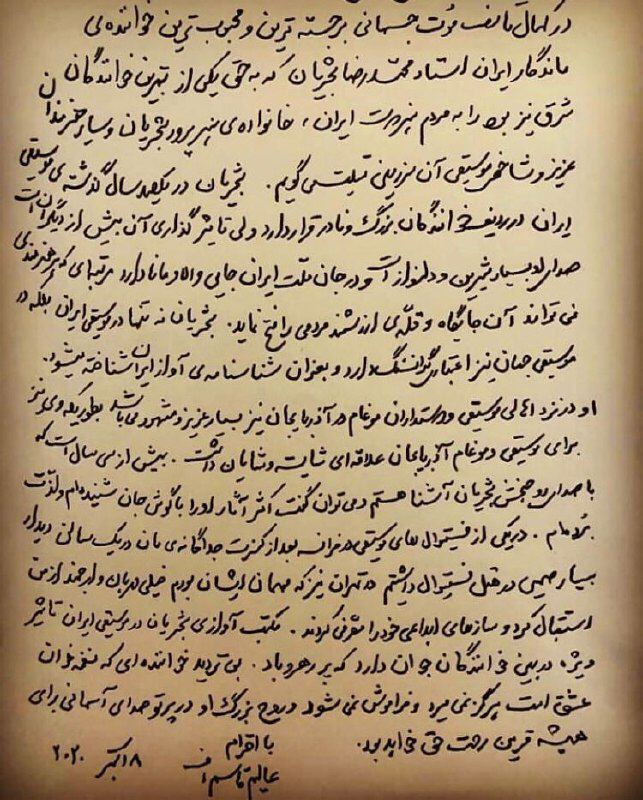 در کمال تأسف فوت جسمانی برجسته ترین و محبوب ترین خواننده ی
ماندگار ایران استاد محمدرضا شجریان که به حق یکی از بهترین خوانندگان
شرق نیز بود را به مردم هنردوست ایران ، خانواده ی هنرپرور شجریان و سایر هنرمندان
عزیز و شاخص موسیقی آن سرزمین تسلیت می گویم . شجریان در یکصد سال گذشته ی موسیقی
ایران در ردیف خوانندگان بزرگ و نادر قرار دارد ولی تاثیر گذاری آن بیش از دیگران است
صدای او بسیار شیرین و دلنواز است و در جان ملت ایران جایی والا و مانا دارد مرتبه ای که هر هنرمندی
نمی تواند آن جایگاه و قله ی ارزشمند مردمی را فتح نماید . شجریان نه تنها در موسیقی ایران بلکه در
موسیقی جهان نیز اعتباری گرانسنگ دارد و بعنوان شناسنامه ی آواز ایران شناخته میشود.
او در نزد اهالی موسیقی و دوستداران موغام در آذربایجان نیز بسیار عزیز و مشهور می باشد بطوریکه وی نیز
برای موسیقی و موغام آذربایجان علاقه ای شایسته و شایان داشت . بیش از سی سال است که
با صدای روحبخش شجریان آشنا هستم و می توان گفت اکثر آثار او را با گوش جان شنیده ام و لذت
برده ام . در یکی از فستیوال های موسیقی در فرانسه بعد از کنسرت جداگانه ی مان در یک سالن دیدار
بسیار صمیمی در هتل فستیوال داشتم در تهران نیز که مهمان ایشان بودم خیلی مهربان و ارجمند از من
استقبال کرد و سازهای ابداعی خود را معرفی کردند . مکتب آوازی شجریان در موسیقی ایران تاثیر
ویژه در بین خوانندگان جوان دارد که پر رهرو باد . بی تردید خواننده ای که نغمه خوان
عشق است هرگز نمی میرد و فراموش نمی شود و روح بزرگ او در پرتو صدای آسمانی برای
همیشه قرین رحمت حق خواهد بود.
با احترام
عالیم قاسم اف
۸ اکتبر ۲۰۲۰